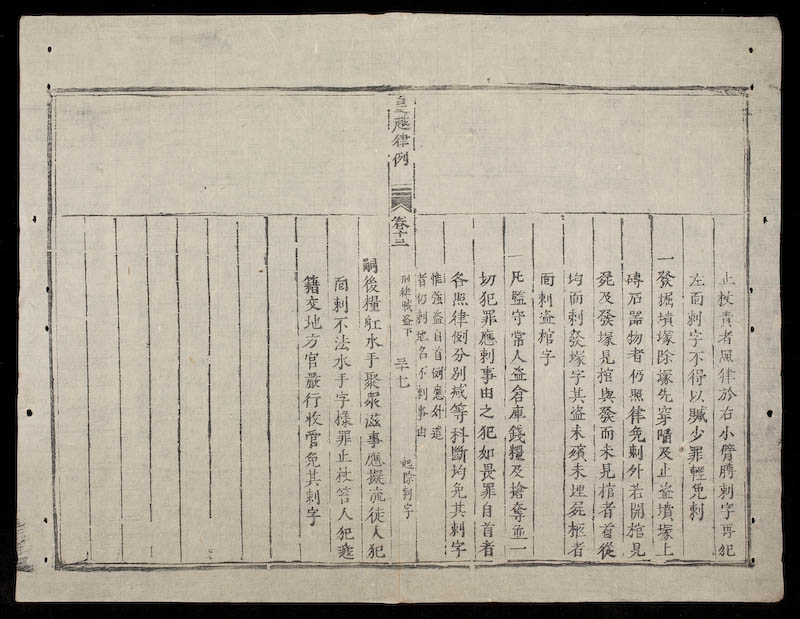 止杖責者照律於右小臂膊刺字再犯
左面刺字不得以贓少罪輕免刺
一發掘墳塚除塚先穿陷及止盜墳塚上
磚石器物者仍照律免刺外若開棺見
屍及發塚見棺與發而未見棺者首從
均面刺發塚字其盜未殯未埋屍柩者
面刺盜棺字
一凡監守常人盜倉庫錢糧及搶奪並一
切犯罪應刺事由之犯如畏罪自首者
各照律例分別減等科斷均免其刺字
惟強盜自首例應外遣
者仍刺地名不刺事由
皇越律例
卷十三
刑律賊盜下 三十七 起除刺字
嗣後糧缸水手聚衆滋事應擬流徒人犯
面刺不法水手字樣罪止杖笞人犯遞
籍交地方官嚴行收管免其刺字